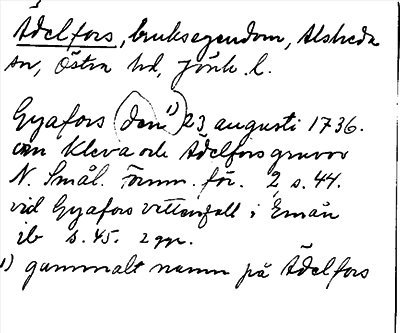 Ädelfors, bruksegendom, Alsheda
sn, Östra hd, Jönk. l.
Gyafors (den¹⁾) 23 augusti 1736.
om Kleva och Ädelfors gruvor
N. Smål. Fornm. för. 2, s. 44.
vid Gyafors vattenfall i Emån
ib s. 45. 2 ggr.
1) gammalt namn på Ädelfors